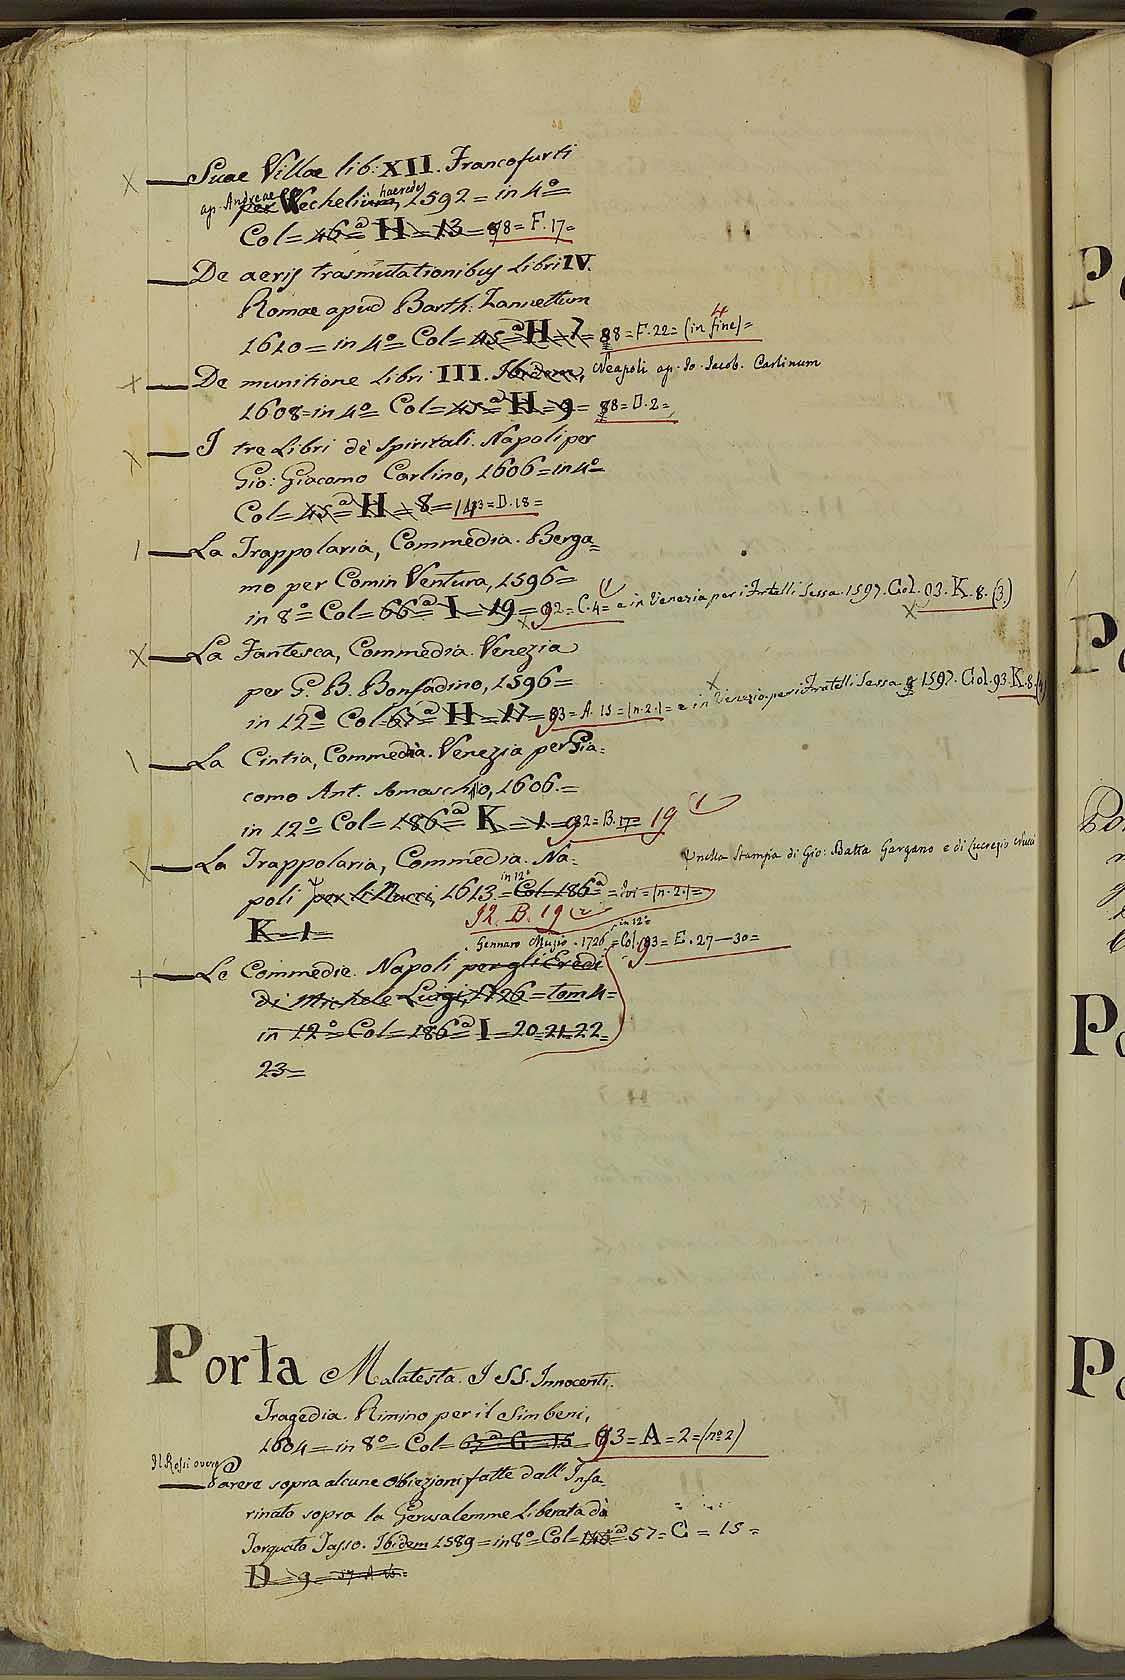 Suae Villae lib: XII. Francofurti
ap. Andreae haeredes
per Wechelium, 1592 = in 4º =
Col = 46ª H = 13 = 98 = F. 17 =
De aeris trasmutationibus Libri IV.
Romae apud Barth: Zannettum
1610 = in 4º = Col = 45ª H = 7 = 88 = F. 22 = (in fine) = 4
De munitione Libri III. Ibidem, Neapoli ap. Io. Jacob. Carlinum
1608 = in 4º = Col = 45ª H = 9 = 88 = D. 2 =
I tre Libri de' Spiritali. Napoli per
Gio: Giacomo Carlino, 1606 = in 4º =
Col = 45ª H = 8 = 143 = D. 18 =
La Trappolaria, Commedia. Berga=
mo per Comin Ventura, 1596 =
in 8º = Col = 66ª I = 19 = 92 = C. 4 = e in Venezia per i Fratelli Sessa. 1597. Col. 93. K. 8. (3.)
La Fantesca, Commedia. Venezia
per G. B. Bonfadino, 1596 =
in 12º Col = 67ª H = 17 = 93 = A. 15 = (n. 2.) = e in Venezia per i Fratelli Sessa 1597. Col. 93. K. 8.
La Cintia, Commedia. Venezia per Gia=
como Ant. Somaschio, 1606. =
in 12º = Col = 186ª K = 1 = 92 = B. 17 = 19 (1
La Trappolaria, Commedia. Na= Ψ nella Stampa di Gio: Batta Gargano e di Lucrezio Nucci
poli Ψ per Li Nucci, 1613 = in 12º Col = 186ª = Ivi = (n. 2.) =
K = 1 = 92. B. 19 (2
Gennaro Muzio. 1726 = in 12º = Col. 93 = E. 27 — 30 =
Le Commedie. Napoli per gli Eredi
di Michele Luigi, 1726 = tom 4 =
in 12º = Col = 186ª I = 20 = 21 = 22 =
23 =
Porta Malatesta. I SS. Innocenti.
Tragedia. Rimino per il Simbeni,
1604 = in 8º = Col = 67ª G = 15 = 93 = A = 2 = (nº 2)
Il Rossi overo
Parere sopra alcune Obiezioni fatte dall'Infa=
rinato sopra la Gerusalemme Liberata di
Torquato Tasso. Ibidem 1589 = in 8º = Col = 146ª = 57 = C = 15 =
D = 9 =